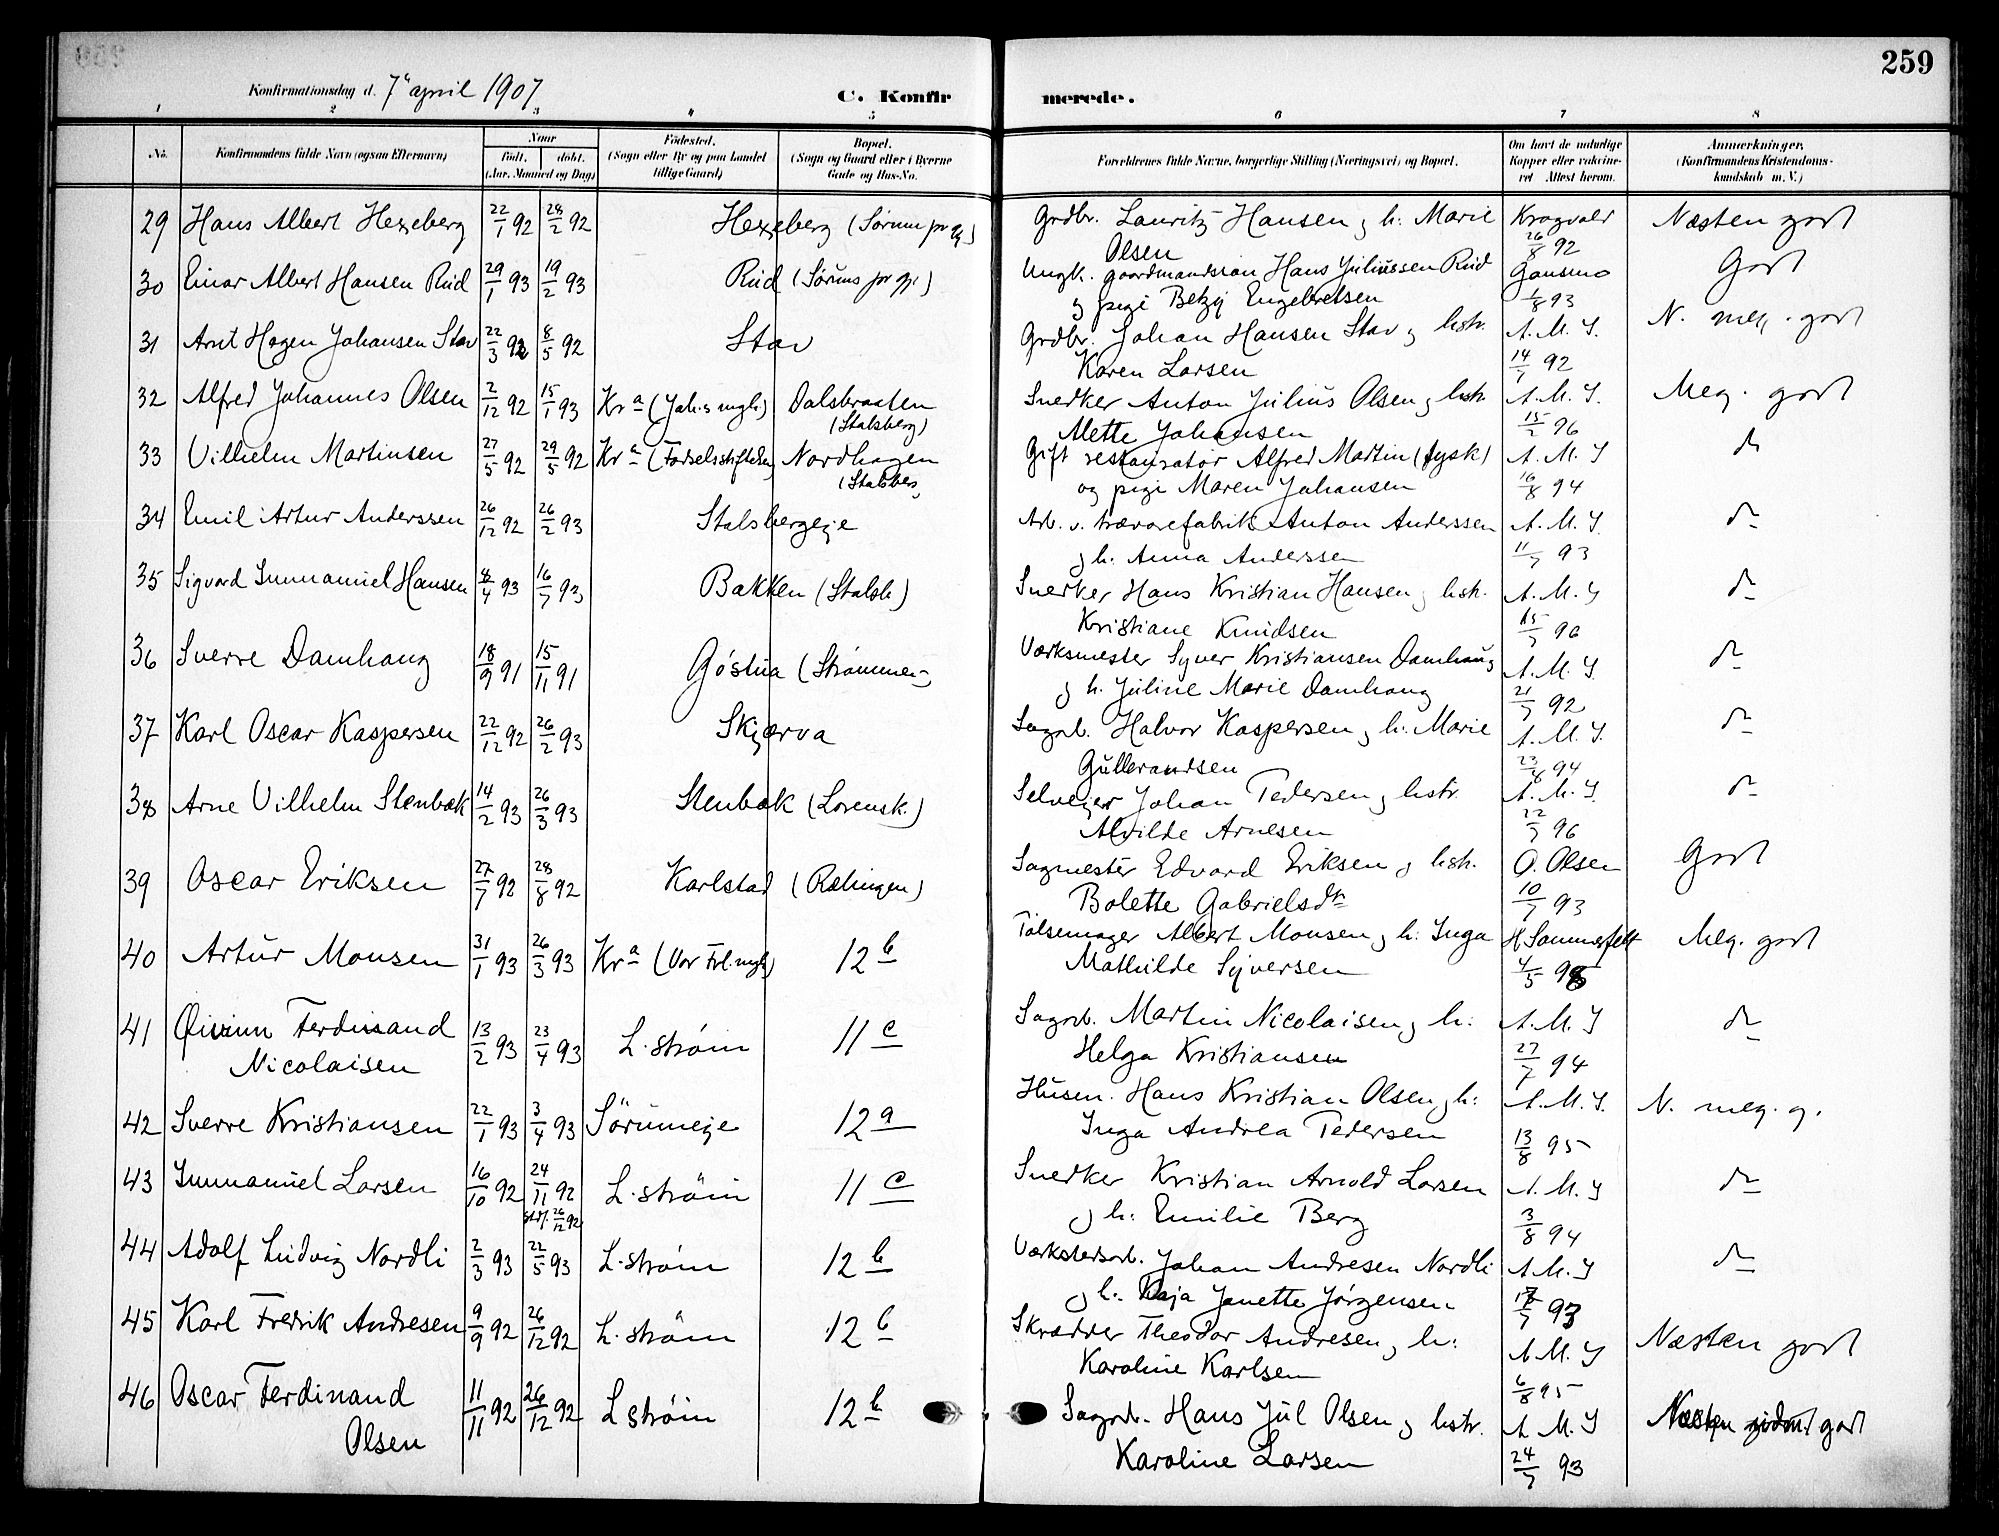 259
Konfirmationsdag d. 7de april 1907
C. Konfirmerede.
1 2 3 4 5 6 7 8
No.
Konfirmandens fulde Navn (ogsaa Efternavn)
Naar
født. døbt.
(Aar, Maaned og Dag)
Fødested.
(Sogn eller By og paa Landet
tillige Gaard)
Bopæl.
(Sogn og Gaard eller i Byerne
Gade og Hus-No.
Forældrenes fulde Navne, borgerlige Stilling (Næringsvei) og Bopæl.
Om havt de naturlige
Kopper eller vakcine-
ret. Attest herom.
Anmerkninger.
(Konfirmandens Kristendoms-
kundskab m. V.)
29 Hans Albert Hexeberg 22/1 92 28/2 92 Hexeberg (Sørum pr gj) Grdbr. Lauritz Hansen og h. Marie Kragvald Næsten godt
Olsen 26/8 92
30 Einar Albert Hansen Rud 29/1 93 19/2 93 Rud (Sørums pr gj.) Ungk. gaardmandssøn Hans Juliussen Rud Gausmo Godt
og pige Betzy Engebretsen 1/8 93
31 Arnt Hagen Johansen Stav 22/3 92 8/5 92 Stav Grdbr. Johan Hansen Stav og hstr. A. M. S. N. meg. godt
Karen Larsen 14/7 92
32 Alfred Johannes Olsen 2/12 92 15/1 93 Kr.a (Joh.s mgh.) Dalsbraaten Snedker Anton Julius Olsen og hstr. A. M. S. Meg. godt
(Stalsberg) Mette Johansen 15/2 96
33 Vilhelm Martinsen 27/5 92 29/5 92 Kr.a (Fødselsstiftelsen) Nordhagen Gift restauratør Alfred Martin (tysk) A. M. S do
(Stalsberg) og pige Maren Johansen 16/8 94
34 Emil Artur Anderssen 26/12 92 26/2 93 Stalsbergeje Arb. v. trævarefabrik Anton Anderssen A. M. S do
og h. Anna Anderssen 11/7 93
35 Sigvard Immanuel Hansen 8/4 93 16/7 93 Bakken (Stalsb.) Snedker Hans Kristian Hansen og hstr. A. M. S do
Kristiane Knudsen 15/7 96
36 Sverre Damhaug 18/9 91 15/11 91 Göstua (Strømmen) Værksmester Syver Kristiansen Damhaug A. M. S. do
og h. Juline Marie Damhaug 21/7 92
37 Karl Oscar Kaspersen 22/12 92 26/2 93 Skjærva Sagarb. Halvor Kaspersen og h. Marie A. M. S. do
Gulbrandsen 23/8 94
38 Arne Vilhelm Stenbæk 14/2 93 26/3 93 Stenbæk (Lørensk.) Selvejer Johan Pedersen og hstr. A. M. S. do
Alvilde Arnesen 22/7 96
39 Oscar Eriksen 27/7 92 28/8 92 Karlstad (Rælingen) Sagmester Edvard Eriksen og hstr. O. Olsen Godt
Bolette Gabrielsdtr 10/7 93
40 Artur Monsen 31/1 93 26/3 93 Kr.a (Vor Frl. mgh) 12 b Pølsemager Albert Monsen og h. Inga H Sommerfelt Meg. godt
Mathilde Syversen 4/5 98
41 Øivinn Ferdinand 13/2 93 23/4 93 L.strøm 11 c Sagarb. Martin Nicolaisen og h: A. M. S do
Nicolaisen Helga Kristiansen 27/7 94
42 Sverre Kristiansen 22/1 93 3/4 93 Sørumeje 12 a Husm. Hans Kristian Olsen og h: A. M. S. N. meg. g.
Inga Andrea Pedersen 13/8 95
43 Immanuel Larsen 16/10 92 24/11 92 L.strøm 11 c Snedker Kristian Arnold Larsen A. M. S do
26/12 92 og h: Emilie Berg 3/8 94
44 Adolf Ludvig Nordli 2/3 93 22/5 93 L.strøm 12 b Værkstedsarb. Johan Andresen Nordli A. M. S do
og h. Kaja Janette Jørgensen 93
45 Karl Fredrik Andresen 9/9 92 26/12 92 L.strøm 12 b Skrædder Theodor Andresen og h: A. M. S Næsten godt
Karoline Karlsen 6/8 95
46 Oscar Ferdinand 11/11 92 26/12 92 L strøm 12 b Sagarb. Hans Jul Olsen og hstr. A. M. S Næsten godt
Olsen Karoline Larsen 24/7 93